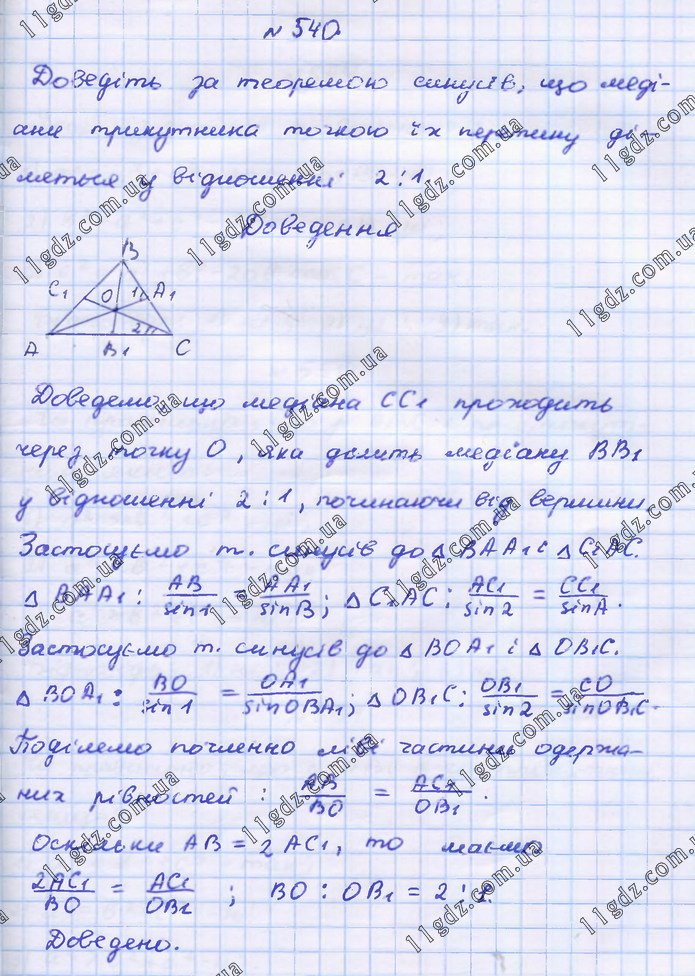 № 540
Доведіть за теоремою синусів, що меді-
ани трикутника точкою їх перетину ді-
ляться у відношенні 2:1.
Доведення
B
C1 O 1 A1
2
A B1 C
Доведемо, що медіана CC1 проходить
через точку O, яка ділить медіану BB1
у відношенні 2:1, починаючи від вершини.
Застосуємо т. синусів до △ BAA1 і △ C1AC.
△ BAA1: AB/sin1 = AA1/sinB; △ C1AC: AC1/sin2 = CC1/sinA.
Застосуємо т. синусів до △ BOA1 і △ OB1C.
△ BOA1: BO/sin1 = OA1/sinOBA1; △ OB1C: OB1/sin2 = CO/sinOB1C.
Поділемо почленно ліві частини одержа-
них рівностей: AB/BO = AC1/OB1.
Оскільки AB = 2AC1, то маємо
2AC1/BO = AC1/OB1; BO : OB1 = 2 : 1.
Доведено.
11gdz.com.ua